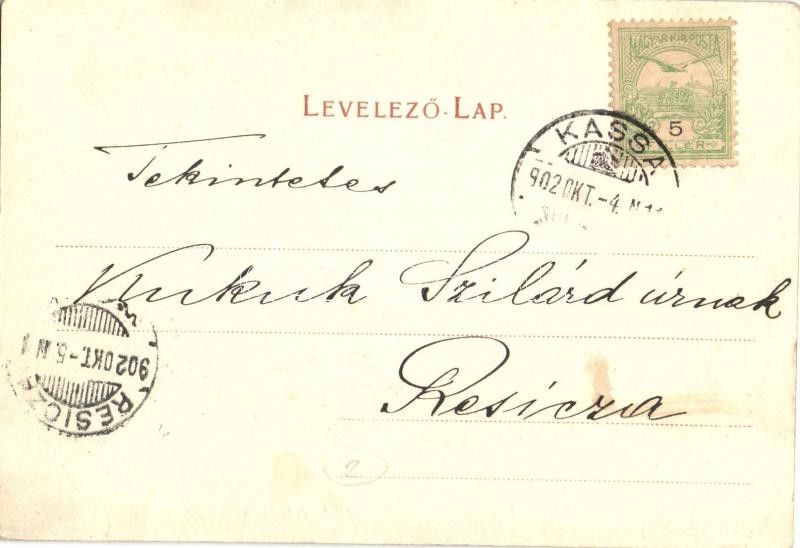 MAGYAR KIR. POSTA
5
LEVELEZŐ-LAP.
KASSA
902 OKT.-4. N
Tekintetes
Kukuk Szilárd úrnak
Resicza
902 OKT.-5. N 1
RESICZA
2